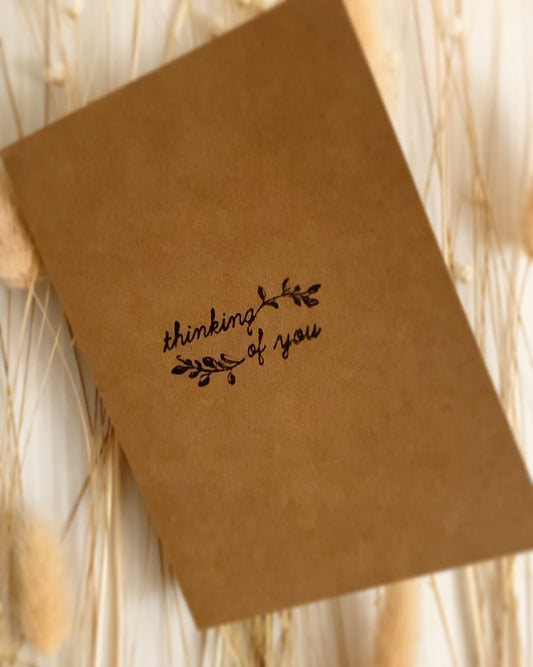 thinking
of you